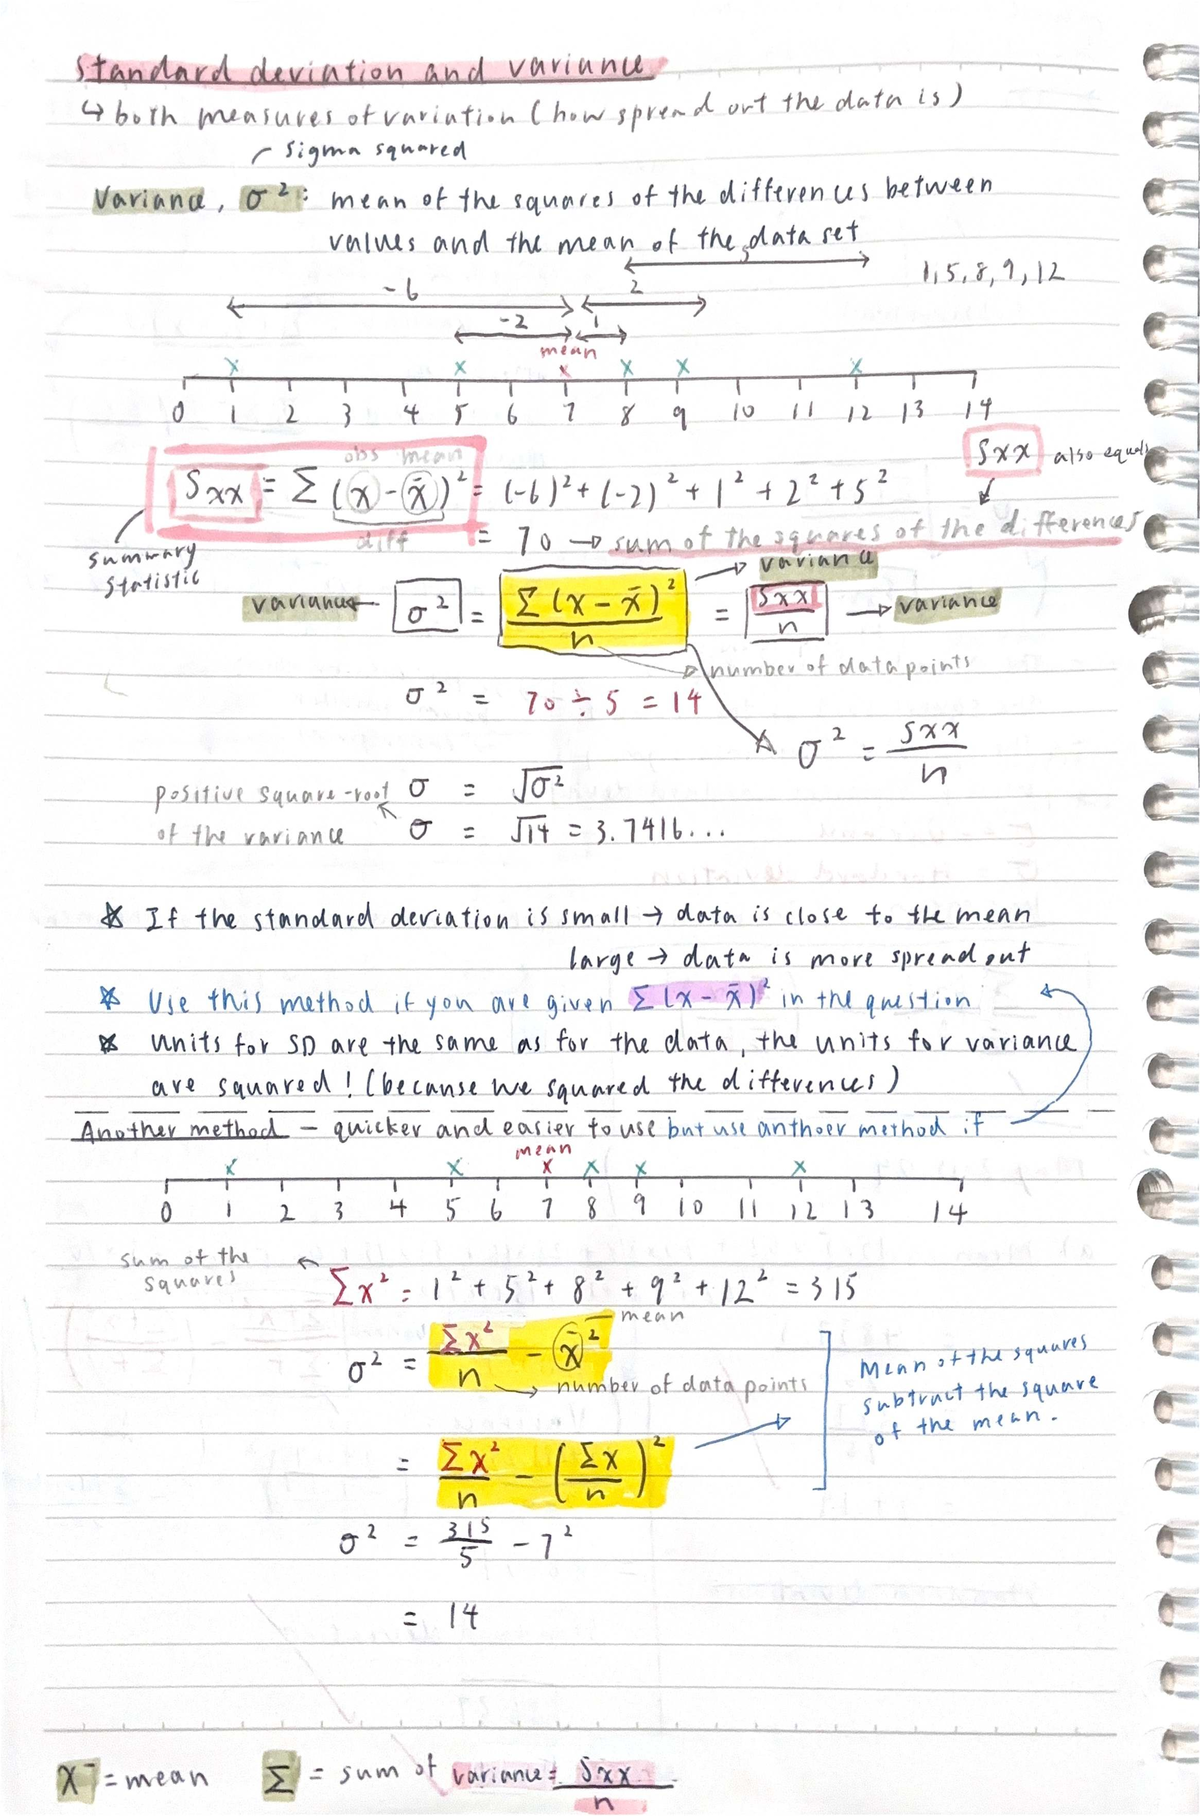 Standard deviation and variance
↳ both measures of variation (how spread out the data is)
sigma squared
Variance, σ²: mean of the squares of the differences between
values and the mean of the data set
5
1, 5, 8, 9, 12
-6 2
-2 1
mean
x x x x x x
0 1 2 3 4 5 6 7 8 9 10 11 12 13 14
obs mean
Sxx = Σ (x - x̄)² = (-6)² + (-2)² + 1² + 2² + 5²
Sxx also equals
diff
= 70 → sum of the squares of the differences
summary
statistic
→ variance
variance ← σ² = Σ(x - x̄)² / n = Sxx / n → variance
→ number of data points
σ² = 70 ÷ 5 = 14
σ² = Sxx / n
positive square-root
of the variance
σ = √σ²
σ = √14 = 3.7416...
☆ If the standard deviation is small → data is close to the mean
large → data is more spread out
☆ Use this method if you are given Σ(x - x̄)² in the question
☆ Units for SD are the same as for the data, the units for variance
are squared! (because we squared the differences)
Another method - quicker and easier to use but use anthoer method if
mean
x x x x x x
0 1 2 3 4 5 6 7 8 9 10 11 12 13 14
sum of the
squares
Σx² = 1² + 5² + 8² + 9² + 12² = 315
mean
σ² = Σx² / n - x̄²
→ number of data points
Mean of the squares
subtract the square
of the mean.
= Σx² / n - (Σx / n)²
σ² = 315 / 5 - 7²
= 14
x̄ = mean Σ = sum of variance = Sxx / n